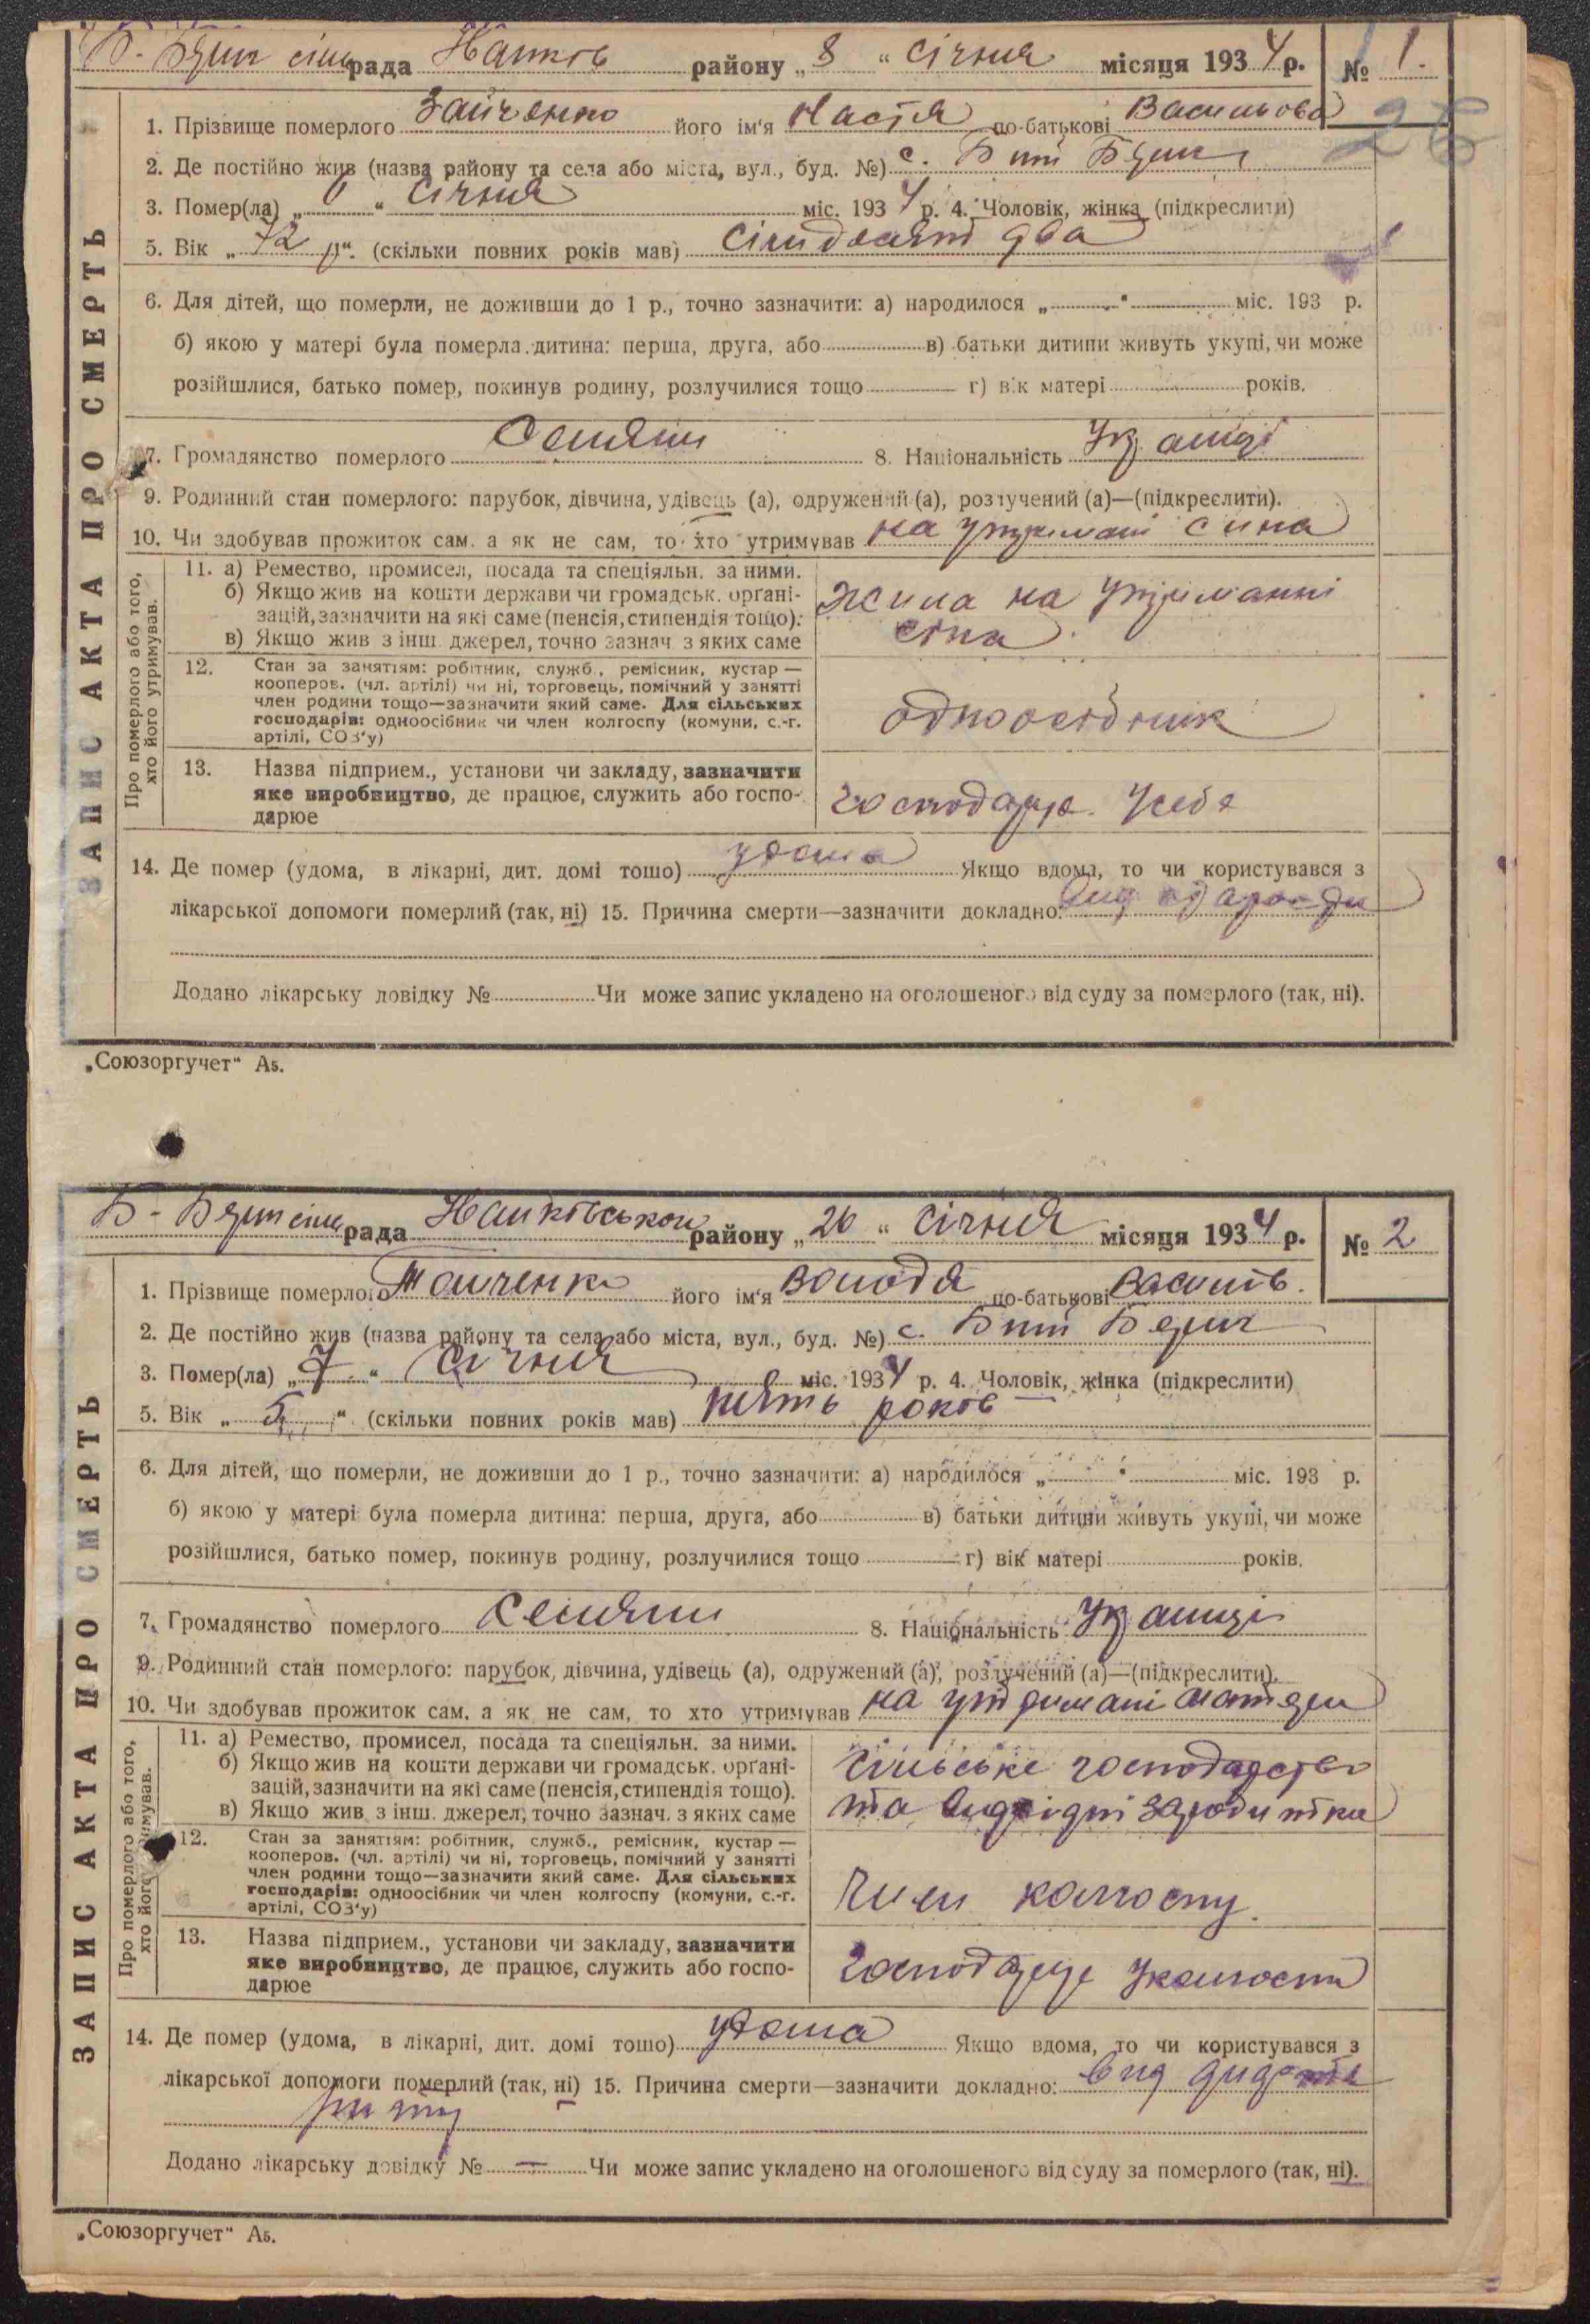 рада району „ 8 “ січня місяця 1934 р. № 1.
26
1. Прізвище померлого Зайченко його ім'я Настя по-батькові Васильова
2. Де постійно жив (назва району та села або міста, вул., буд. №) с. Бит
3. Помер(ла) „ “ січня міс. 1934 р. 4. Чоловік, жінка (підкреслити)
5. Вік „ 72 р“. (скільки повних років мав) два
6. Для дітей, що померли, не доживши до 1 р., точно зазначити: а) народилося „ “ міс. 193 р.
б) якою у матері була померла дитина: перша, друга, або в) батьки дитини живуть укупі, чи може
розійшлися, батько помер, покинув родину, розлучилися тощо г) вік матері років.
7. Громадянство померлого Селяни 8. Національність
9. Родинний стан померлого: парубок, дівчина, удівець (а), одружений (а), розлучений (а)—(підкреслити).
10. Чи здобував прожиток сам, а як не сам, то хто утримував на утримані сина
ЗАПИС АКТА ПРО СМЕРТЬ
Про померлого або того, хто його утримував.
11. а) Ремество, промисел, посада та спеціяльн. за ними.
б) Якщо жив на кошти держави чи громадськ. орґані-
зацій, зазначити на які саме (пенсія, стипендія тощо).
в) Якщо жив з інш. джерел, точно зазнач. з яких саме
Жила на утриманні
сіна
12. Стан за заняттям: робітник, служб., ремісник, кустар —
кооперов. (чл. артілі) чи ні, торговець, помічний у занятті
член родини тощо—зазначити який саме. Для сільських
господарів: одноосібник чи член колгоспу (комуни, с.-г.
артілі, СОЗ'у)
одноосібник
13. Назва підприєм., установи чи закладу, зазначити
яке виробництво, де працює, служить або госпо-
дарює
господарює У себе
14. Де помер (удома, в лікарні, дит. домі тощо) удома Якщо вдома, то чи користувався з
лікарської допомоги померлий (так, ні) 15. Причина смерти—зазначити докладно:
Додано лікарську довідку № Чи може запис укладено на оголошеного від суду за померлого (так, ні).
„Союзоргучет“ А5.
рада району „ 26 “ січня місяця 1934 р. № 2
1. Прізвище померлого його ім'я Володя по-батькові Василів.
2. Де постійно жив (назва району та села або міста, вул., буд. №) с. Бит
3. Помер(ла) „ 7 “ січня міс. 1934 р. 4. Чоловік, жінка (підкреслити)
5. Вік „ 5 “ (скільки повних років мав) пять років
6. Для дітей, що померли, не доживши до 1 р., точно зазначити: а) народилося „ “ міс. 193 р.
б) якою у матері була померла дитина: перша, друга, або в) батьки дитини живуть укупі, чи може
розійшлися, батько помер, покинув родину, розлучилися тощо г) вік матері років.
7. Громадянство померлого Селяни 8. Національність
9. Родинний стан померлого: парубок, дівчина, удівець (а), одружений (а), розлучений (а)—(підкреслити).
10. Чи здобував прожиток сам, а як не сам, то хто утримував на утримані матери
ЗАПИС АКТА ПРО СМЕРТЬ
Про померлого або того, хто його утримував.
11. а) Ремество, промисел, посада та спеціяльн. за ними.
б) Якщо жив на кошти держави чи громадськ. орґані-
зацій, зазначити на які саме (пенсія, стипендія тощо).
в) Якщо жив з інш. джерел, точно зазнач. з яких саме
сільське господарство
та заробитки
12. Стан за заняттям: робітник, служб., ремісник, кустар —
кооперов. (чл. артілі) чи ні, торговець, помічний у занятті
член родини тощо—зазначити який саме. Для сільських
господарів: одноосібник чи член колгоспу (комуни, с.-г.
артілі, СОЗ'у)
Член колгоспу.
13. Назва підприєм., установи чи закладу, зазначити
яке виробництво, де працює, служить або госпо-
дарює
господарує
14. Де помер (удома, в лікарні, дит. домі тощо) удома Якщо вдома, то чи користувався з
лікарської допомоги померлий (так, ні) 15. Причина смерти—зазначити докладно:
Додано лікарську довідку № — Чи може запис укладено на оголошеного від суду за померлого (так, ні).
„Союзоргучет“ А5.